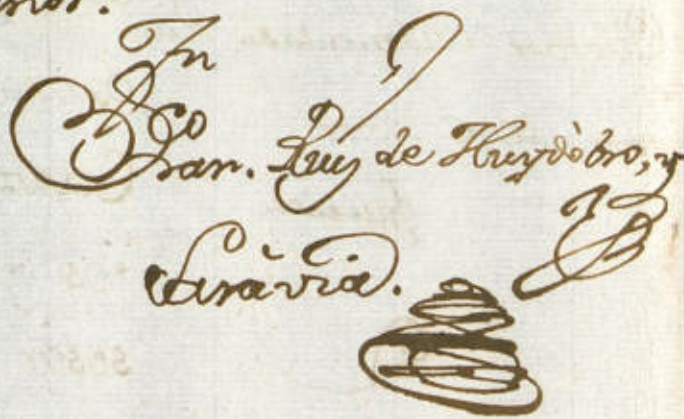 Jn
Fran.co Ruiz de Huydôbro, y
Saràvia.